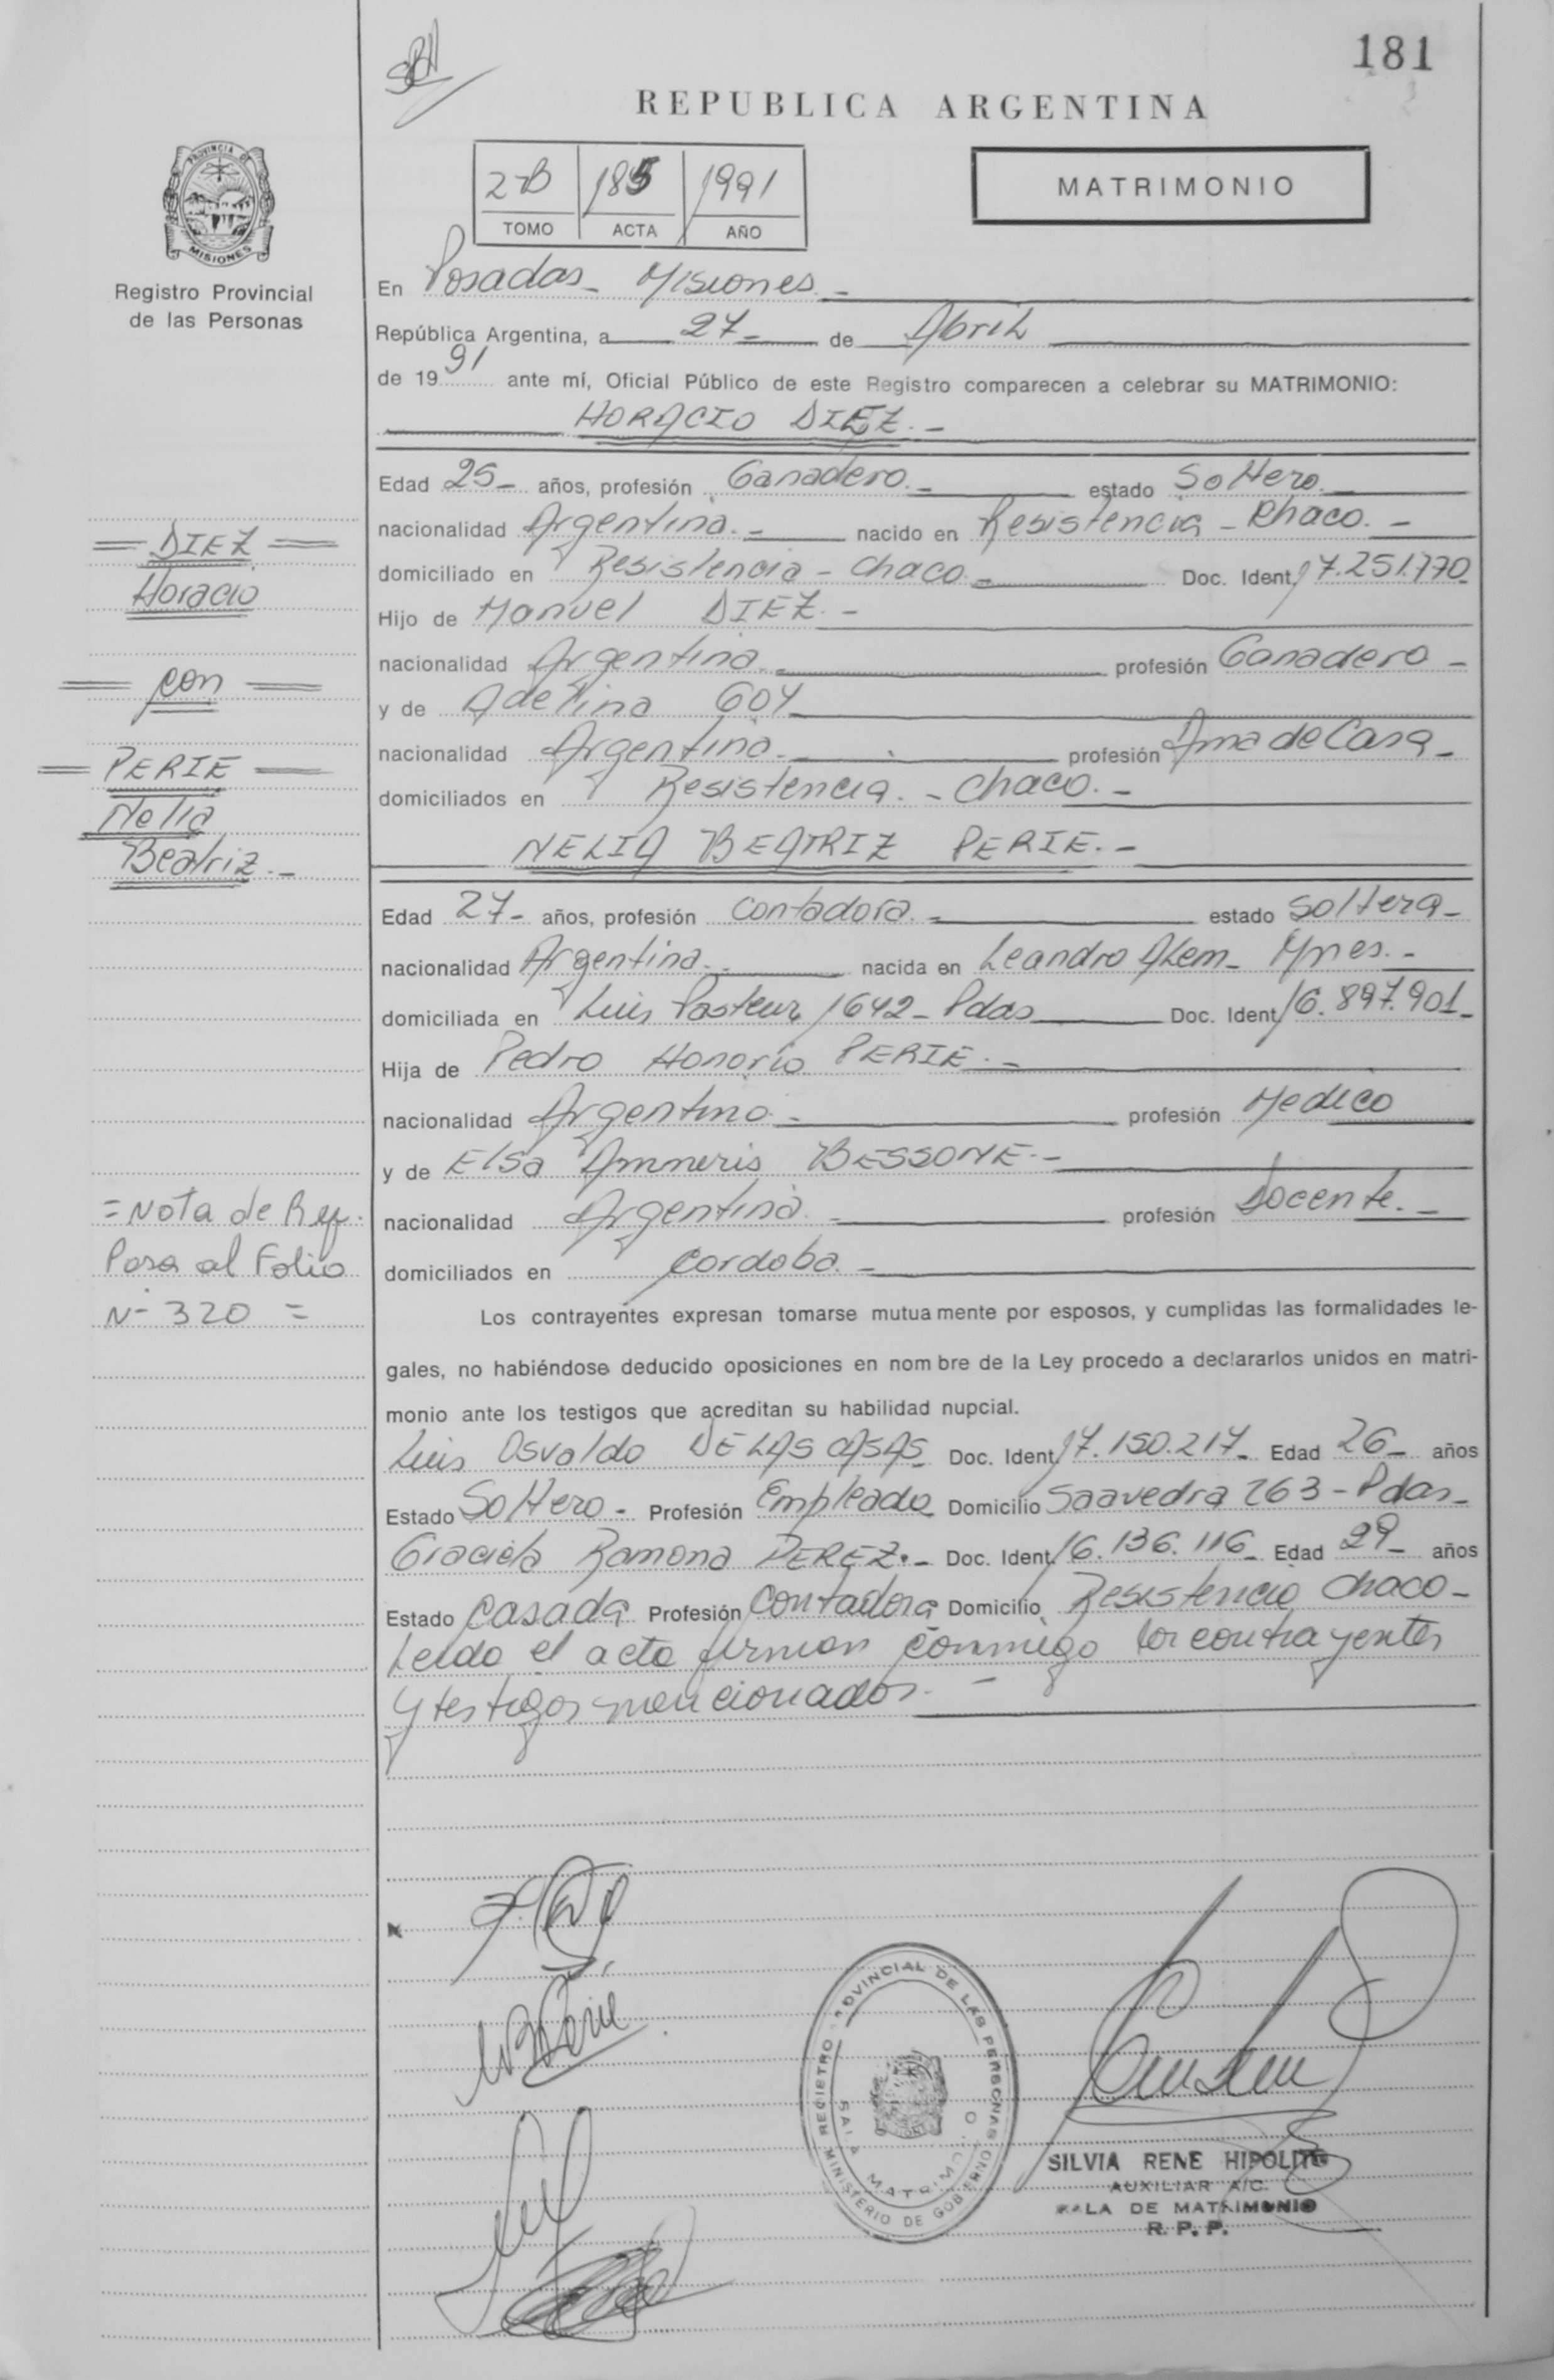 181
REPUBLICA ARGENTINA
2-B 185 1991
TOMO ACTA AÑO
MATRIMONIO
PROVINCIA DE
MISIONES
Registro Provincial
de las Personas
En Posadas - Misiones. -
República Argentina, a 27 - de Abril
de 1991 ante mí, Oficial Público de este Registro comparecen a celebrar su MATRIMONIO:
HORACIO DIEZ. -
Edad 25 - años, profesión Ganadero. - estado Soltero. -
nacionalidad Argentina. - nacido en Resistencia - Chaco. -
domiciliado en Resistencia - Chaco - Doc. Ident. 17.251.770
Hijo de Manuel DIEZ. -
nacionalidad Argentina. - profesión Ganadero -
y de Adelina GOY
nacionalidad Argentina. - profesión Ama de Casa -
domiciliados en Resistencia. - Chaco. -
NELIA BEATRIZ PERIE. -
Edad 27 - años, profesión Contadora. - estado Soltera -
nacionalidad Argentina. - nacida en Leandro Alem - Mnes. -
domiciliada en Luis Pasteur 1642 - Pdas Doc. Ident. 16.897.901 -
Hija de Pedro Honorio PERIE. -
nacionalidad Argentino. - profesión Medico
y de Elsa Amneris BESSONE. -
nacionalidad Argentina. - profesión Docente. -
domiciliados en Cordoba. -
= DIEZ =
Horacio
= con =
= PERIE =
Nelia
Beatriz. -
= Nota de Ref.
Pasa al Folio
N- 320 =
Los contrayentes expresan tomarse mutuamente por esposos, y cumplidas las formalidades le-
gales, no habiéndose deducido oposiciones en nombre de la Ley procedo a declararlos unidos en matri-
monio ante los testigos que acreditan su habilidad nupcial.
Luis Osvaldo DE LAS CASAS Doc. Ident. 17.150.217 - Edad 26 - años
Estado Soltero - Profesión Empleado Domicilio Saavedra 263 - Pdas -
Graciela Ramona PEREZ. - Doc. Ident. 16.136.116 - Edad 29 - años
Estado Casada Profesión Contadora Domicilio Resistencia Chaco -
Leido el acta firman conmigo los contrayentes
y testigos mencionados. -
REGISTRO PROVINCIAL DE LAS PERSONAS
SALA MATRIMONIO
MINISTERIO DE GOBIERNO
SILVIA RENE HIPOLITO
AUXILIAR A/C.
SALA DE MATRIMONIO
R. P. P.